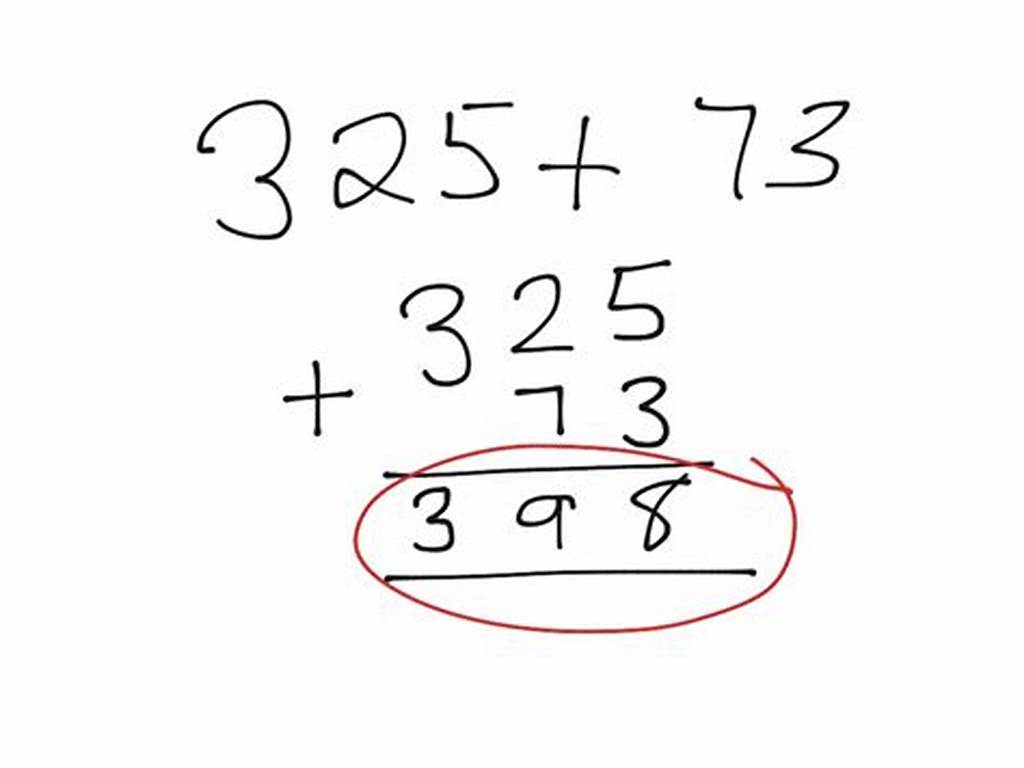 325 + 73
325
+ 73
398